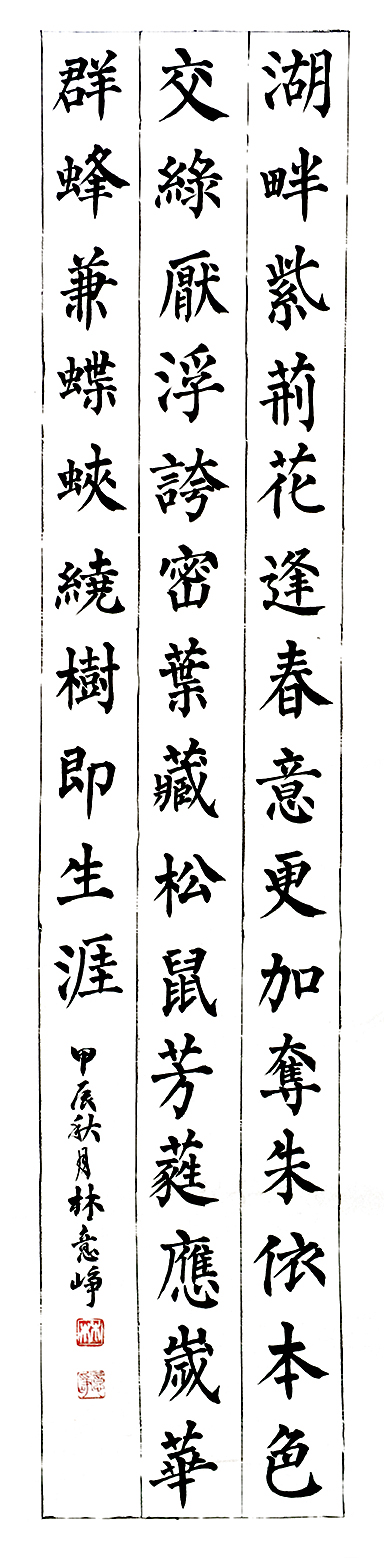 湖畔紫荊花逢春意更加奪朱依本色
交綠厭浮誇密葉藏松鼠芳蕤應歲華
群蜂兼蝶蛺繞樹即生涯
甲辰秋月林意崢